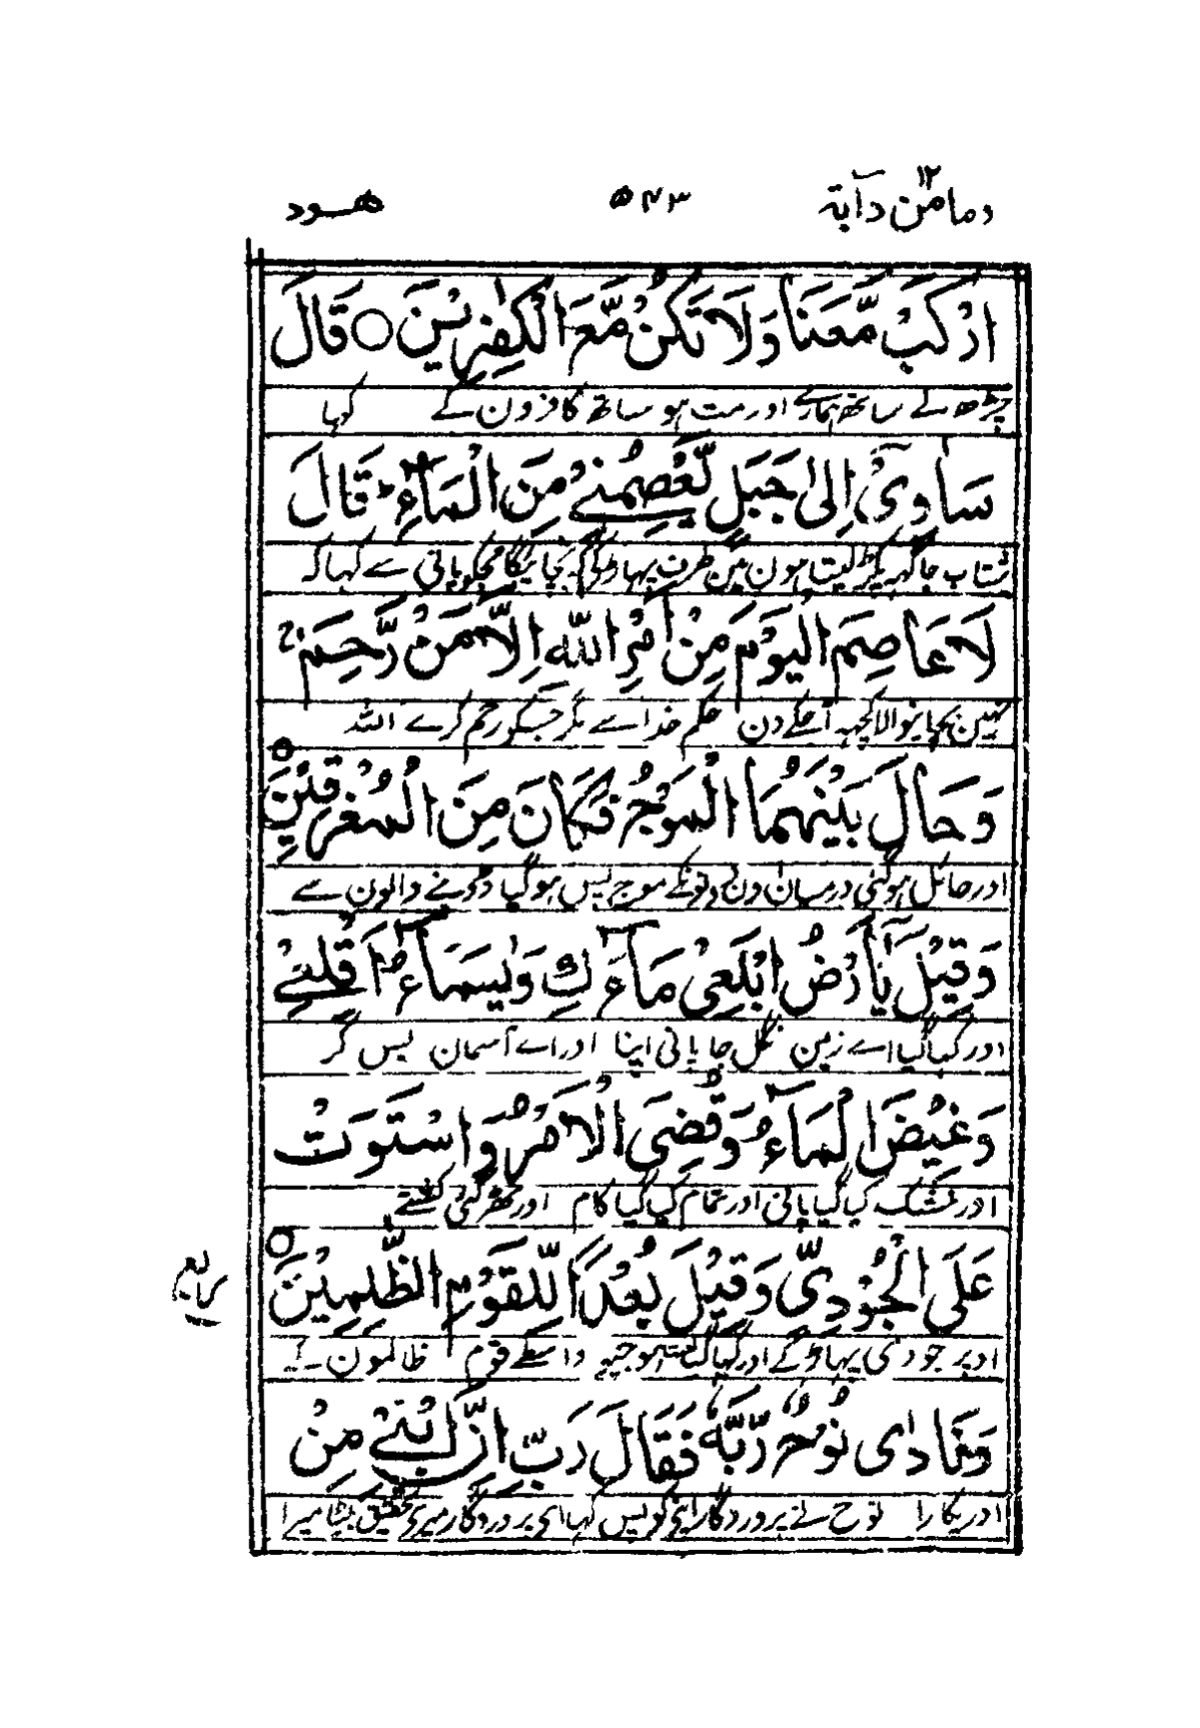 ومامن دآبة ۱۲ ۵۴۳ هود
ارْكَبْ مَّعَنَا وَلَا تَكُنْ مَّعَ الْكٰفِرِيْنَ ○ قَالَ
چڑھ لے ساتھ ہمارے اور مت ہو ساتھ کافرون کے کہا
سَاٰوِيْٓ اِلٰى جَبَلٍ يَّعْصِمُنِيْ مِنَ الْمَآءِ ؕ قَالَ
شتاب جاگہہ پکڑ لیتا ہون مین طرف پہاڑ کی کہ بچائیگا مجکو پانی سے کہا کہ
لَا عَاصِمَ الْيَوْمَ مِنْ اَمْرِ اللّٰهِ اِلَّا مَنْ رَّحِمَ ۚ
نہین بچانیوالا کچھہ آجکے دن حکم خدا سے مگر جسکو رحم کرے اللہ
وَحَالَ بَيْنَهُمَا الْمَوْجُ فَكَانَ مِنَ الْمُغْرَقِيْنَ ○
اور حائل ہو گئی درمیان ان دونونکے موج پس ہو گیا ڈوبنے والون سے
وَقِيْلَ يٰٓاَرْضُ ابْلَعِيْ مَآءَكِ وَيٰسَمَآءُ اَقْلِعِيْ
اور کہا گیا اے زمین نگل جا پانی اپنا اور اے آسمان بس کر
وَغِيْضَ الْمَآءُ وَقُضِيَ الْاَمْرُ وَاسْتَوَتْ
اور خشک کیا گیا پانی اور تمام کیا گیا کام اور ٹھہر گئی کشتے
عَلَى الْجُوْدِيِّ وَقِيْلَ بُعْدًا لِّلْقَوْمِ الظّٰلِمِيْنَ ○
اوپر جودی پہاڑ کے اور کہا گیا لعنت ہوجیو واسطے قوم ظالمون کے
وَنَادٰى نُوْحٌ رَّبَّهٗ فَقَالَ رَبِّ اِنَّ ابْنِيْ مِنْ
اور پکارا نوح نے پروردگار اپنے کو پس کہا اے پروردگار میرے تحقیق بیٹا میرا